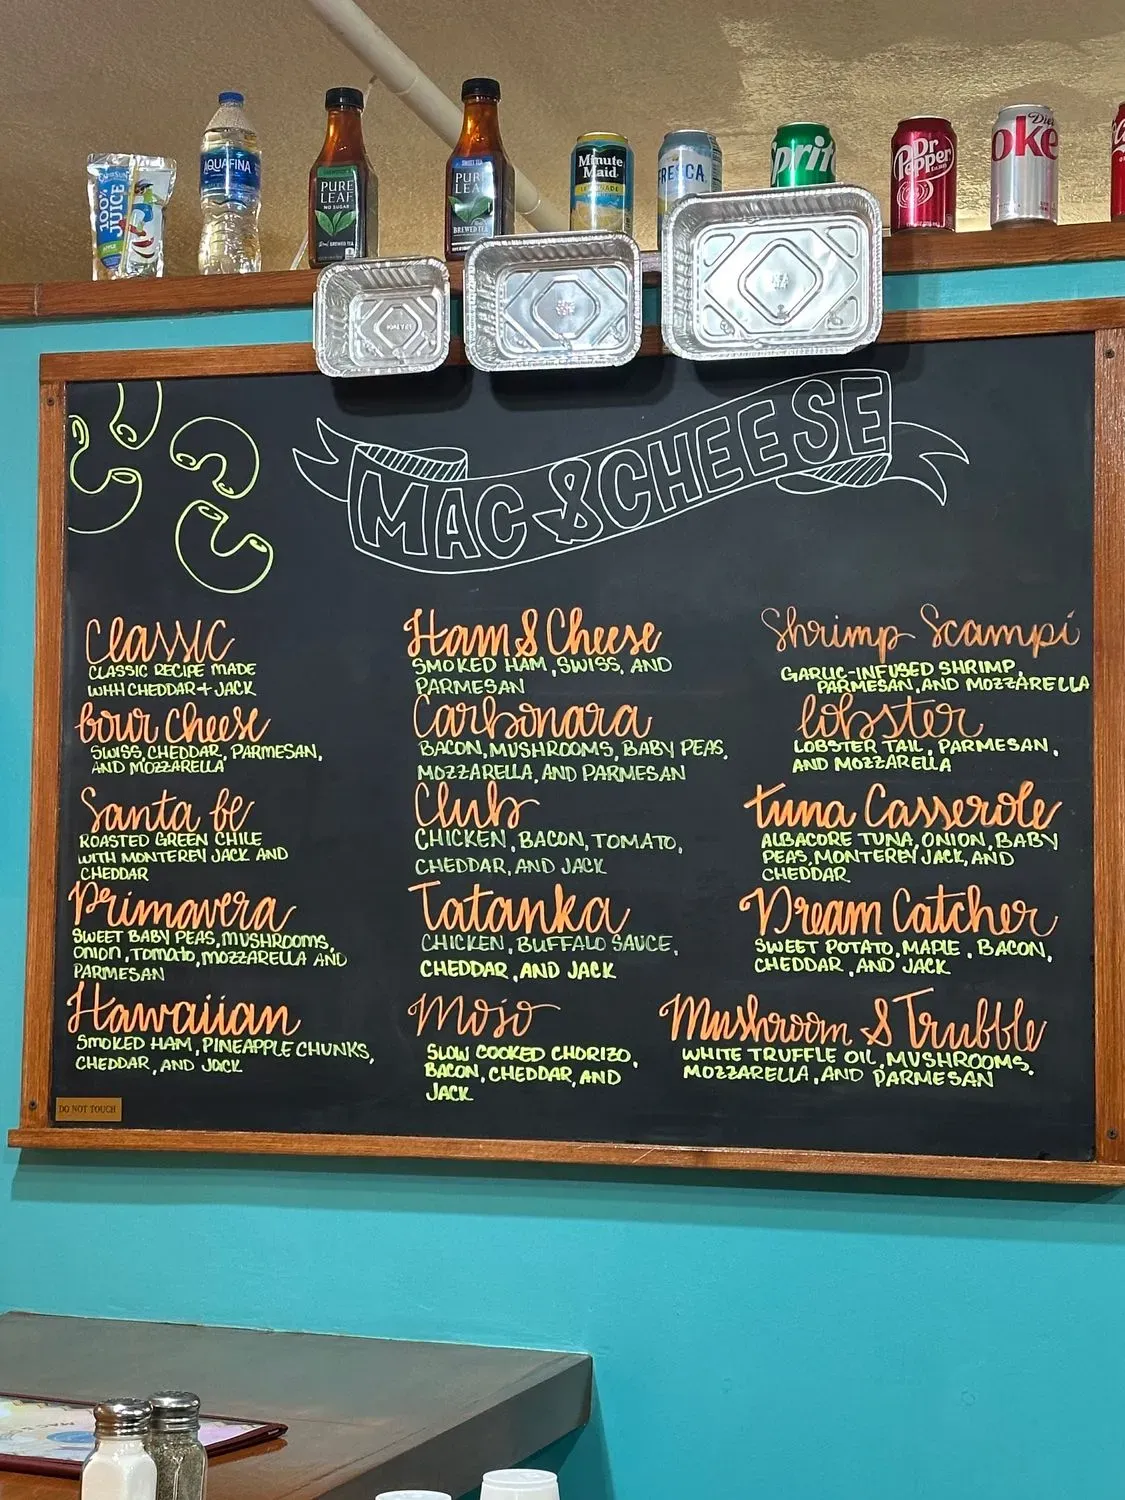 100% JUICE
APPLE
AQUAFINA
PURE LEAF
NO SUGAR
BREWED TEA
SWEET TEA
PURE LEAF
BREWED TEA
Minute Maid
LEMONADE
FRESCA
Sprit
Dr Pepper
Die
oke
MAC & CHEESE
Classic
CLASSIC RECIPE MADE
WITH CHEDDAR + JACK
four cheese
SWISS, CHEDDAR, PARMESAN,
AND MOZZARELLA
Santa fe
ROASTED GREEN CHILE
WITH MONTEREY JACK AND
CHEDDAR
Primavera
SWEET BABY PEAS, MUSHROOMS,
ONION, TOMATO, MOZZARELLA AND
PARMESAN
Hawaiian
SMOKED HAM, PINEAPPLE CHUNKS,
CHEDDAR, AND JACK
Ham & Cheese
SMOKED HAM, SWISS, AND
PARMESAN
Carbonara
BACON, MUSHROOMS, BABY PEAS,
MOZZARELLA, AND PARMESAN
Club
CHICKEN, BACON, TOMATO,
CHEDDAR, AND JACK
Tatanka
CHICKEN, BUFFALO SAUCE,
CHEDDAR, AND JACK
Mojo
SLOW COOKED CHORIZO,
BACON, CHEDDAR, AND
JACK
Shrimp Scampi
GARLIC-INFUSED SHRIMP,
PARMESAN, AND MOZZARELLA
lobster
LOBSTER TAIL, PARMESAN,
AND MOZZARELLA
tuna Casserole
ALBACORE TUNA, ONION, BABY
PEAS, MONTEREY JACK, AND
CHEDDAR
Dream Catcher
SWEET POTATO, MAPLE, BACON,
CHEDDAR, AND JACK
Mushroom & Truffle
WHITE TRUFFLE OIL, MUSHROOMS,
MOZZARELLA, AND PARMESAN
DO NOT TOUCH